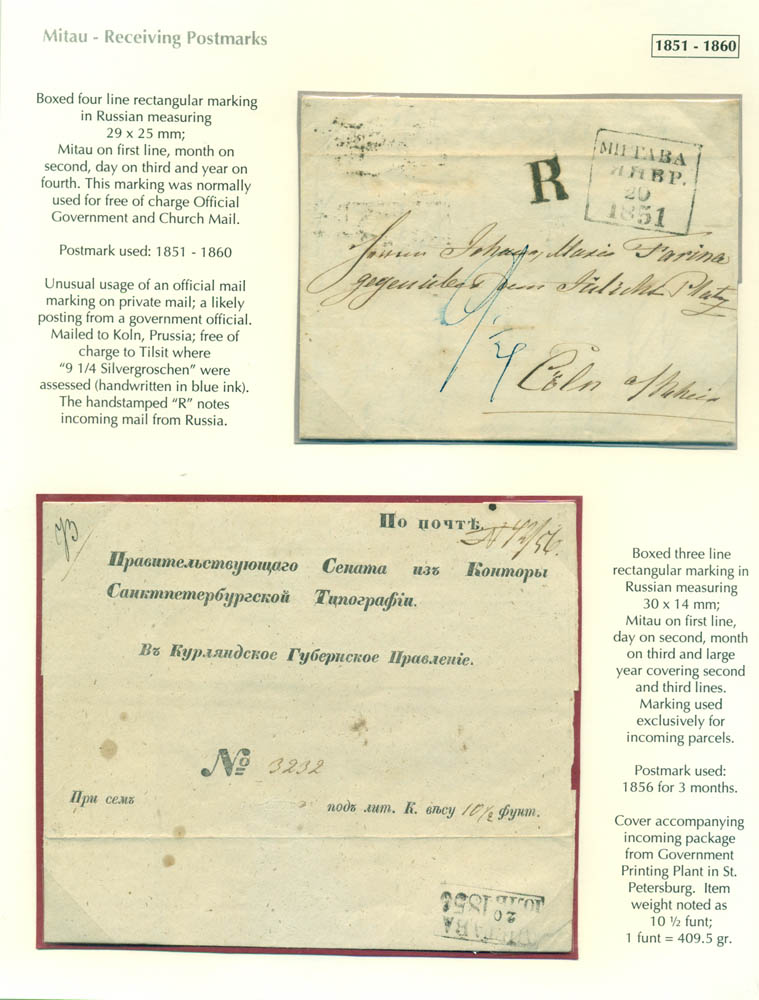 Mitau - Receiving Postmarks
1851 - 1860
Boxed four line rectangular marking
in Russian measuring
29 x 25 mm;
Mitau on first line, month on
second, day on third and year on
fourth. This marking was normally
used for free of charge Official
Government and Church Mail.
Postmark used: 1851 - 1860
Unusual usage of an official mail
marking on private mail; a likely
posting from a government official.
Mailed to Koln, Prussia; free of
charge to Tilsit where
“9 1/4 Silvergroschen” were
assessed (handwritten in blue ink).
The handstamped “R” notes
incoming mail from Russia.
R
МИТАВА
ЯНВР.
20
1851
Herrn Johann Maria Farina
gegenüber dem Jülichs Platz
Cöln a/Rhein
По почтѣ.
№ 42/56.
Правительствующаго Сената изъ Конторы
Санктпетербургской Типографіи.
Въ Курляндское Губернское Правленіе.
№ 3232
При семъ
подъ лит. К. вѣсу 10 1/2 фунт.
МИТАВА
20
1856
Boxed three line
rectangular marking in
Russian measuring
30 x 14 mm;
Mitau on first line,
day on second, month
on third and large
year covering second
and third lines.
Marking used
exclusively for
incoming parcels.
Postmark used:
1856 for 3 months.
Cover accompanying
incoming package
from Government
Printing Plant in St.
Petersburg. Item
weight noted as
10 ½ funt;
1 funt = 409.5 gr.